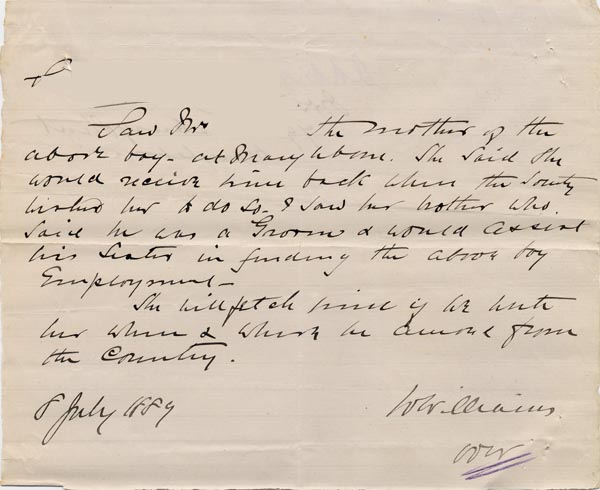 Saw Mrs the mother of the
above boy - at Marylebone. She said she
would receive him back when the Society
wished her to do so. I saw her brother who
said he was a Groom & would assist
his Sister in finding the above boy
Employment -
She will fetch him if we write
her when & where he arrives from
the Country.
8 July 1889
W Williams